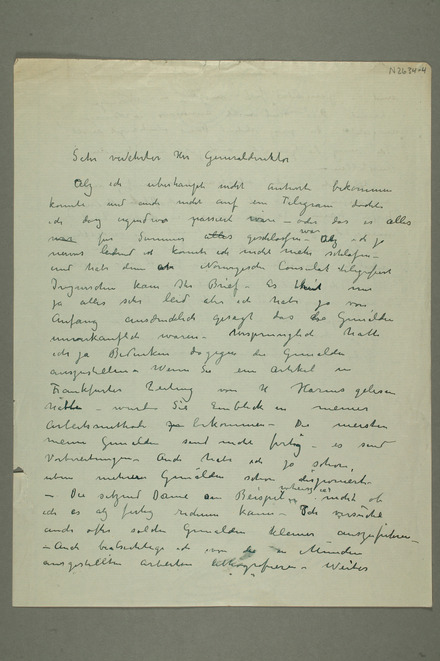 N 2634-4
Sehr verehrter Herr Generaldirektor
Alz ich uberhaupt nicht antwort bekommen
konnte und auch nicht auf ein Telegram dachte
ich dass irgendwo passiert wäre – oder das es alles
fur Sommer geschlafen war – Alz ich ja
nervös leidend ist konnte ich nicht mehr schlafen –
und hatte dem Norwegische Consulat telegrafiert
Inzwischen kam Ihr Brief – Es thut mir
ja alles sehr leid aber ich hatte ja von
Anfang ausdrücklich gesagt das die Gemälden
unverkauflich waren – Ursprunglich hatte
ich ja Bedenken dagegen die Gemälden
auszustellen – Wenn Sie ein artikel in
Frankfurter Zeitung von H Harms gelesen
hätte – wurden Sie Einblick in meiner
Arbeitsmethode bekommen – Die meisten
meine Gemälden sind nicht fertig – es sind
Vorbereitungen – Auch hatte ich ja schon
uber mehrere Gemälden schon disponiert –
– Die sitzend Dame zum Beispiel weiss ich nicht ob
ich es alz fertig rechnen kann – Ich versuche
auch ofte solche Gemälden kleiner auszufuhren –
– Auch beabsichtige ich von die in München
ausgestellten arbeiten lithografieren – Weiter